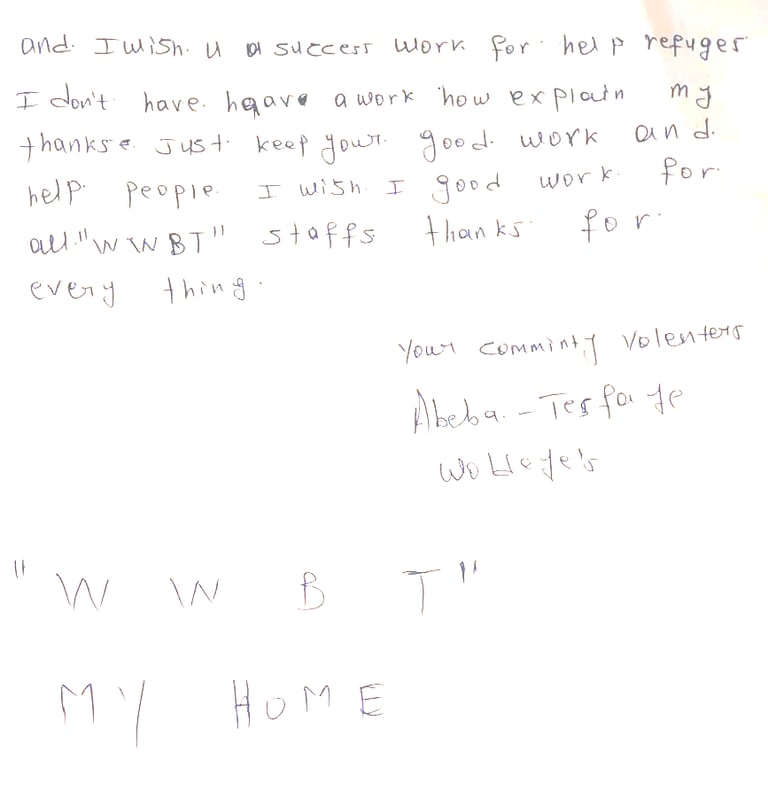 and. I wish. u a success work for help refuger
I don't have. have a work how explain my
thanks. Just. keep your. good. work and.
help. people. I wish. I good work. for.
all. "WWBT" staffs thanks for.
every thing.
Your comminty volenters
Abeba. - Tesfaye
"W W B T"
MY HOME